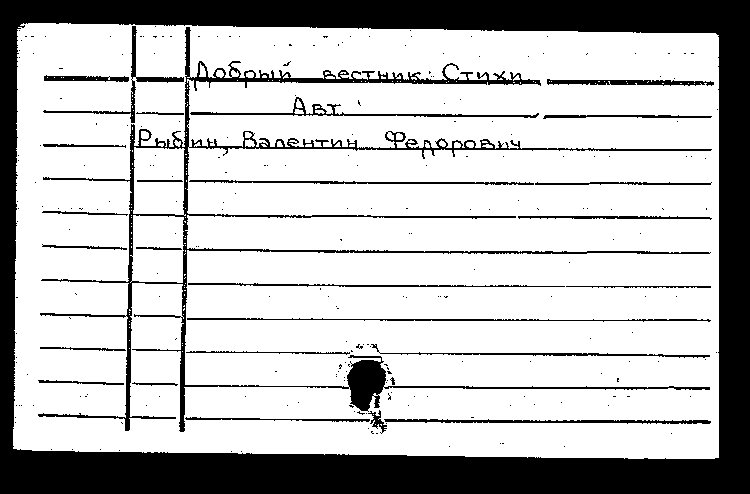 Добрый вестник. Стихи
Авт.
Рыбин, Валентин Федорович